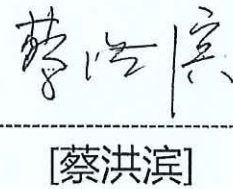 蔡洪滨
[蔡洪滨]